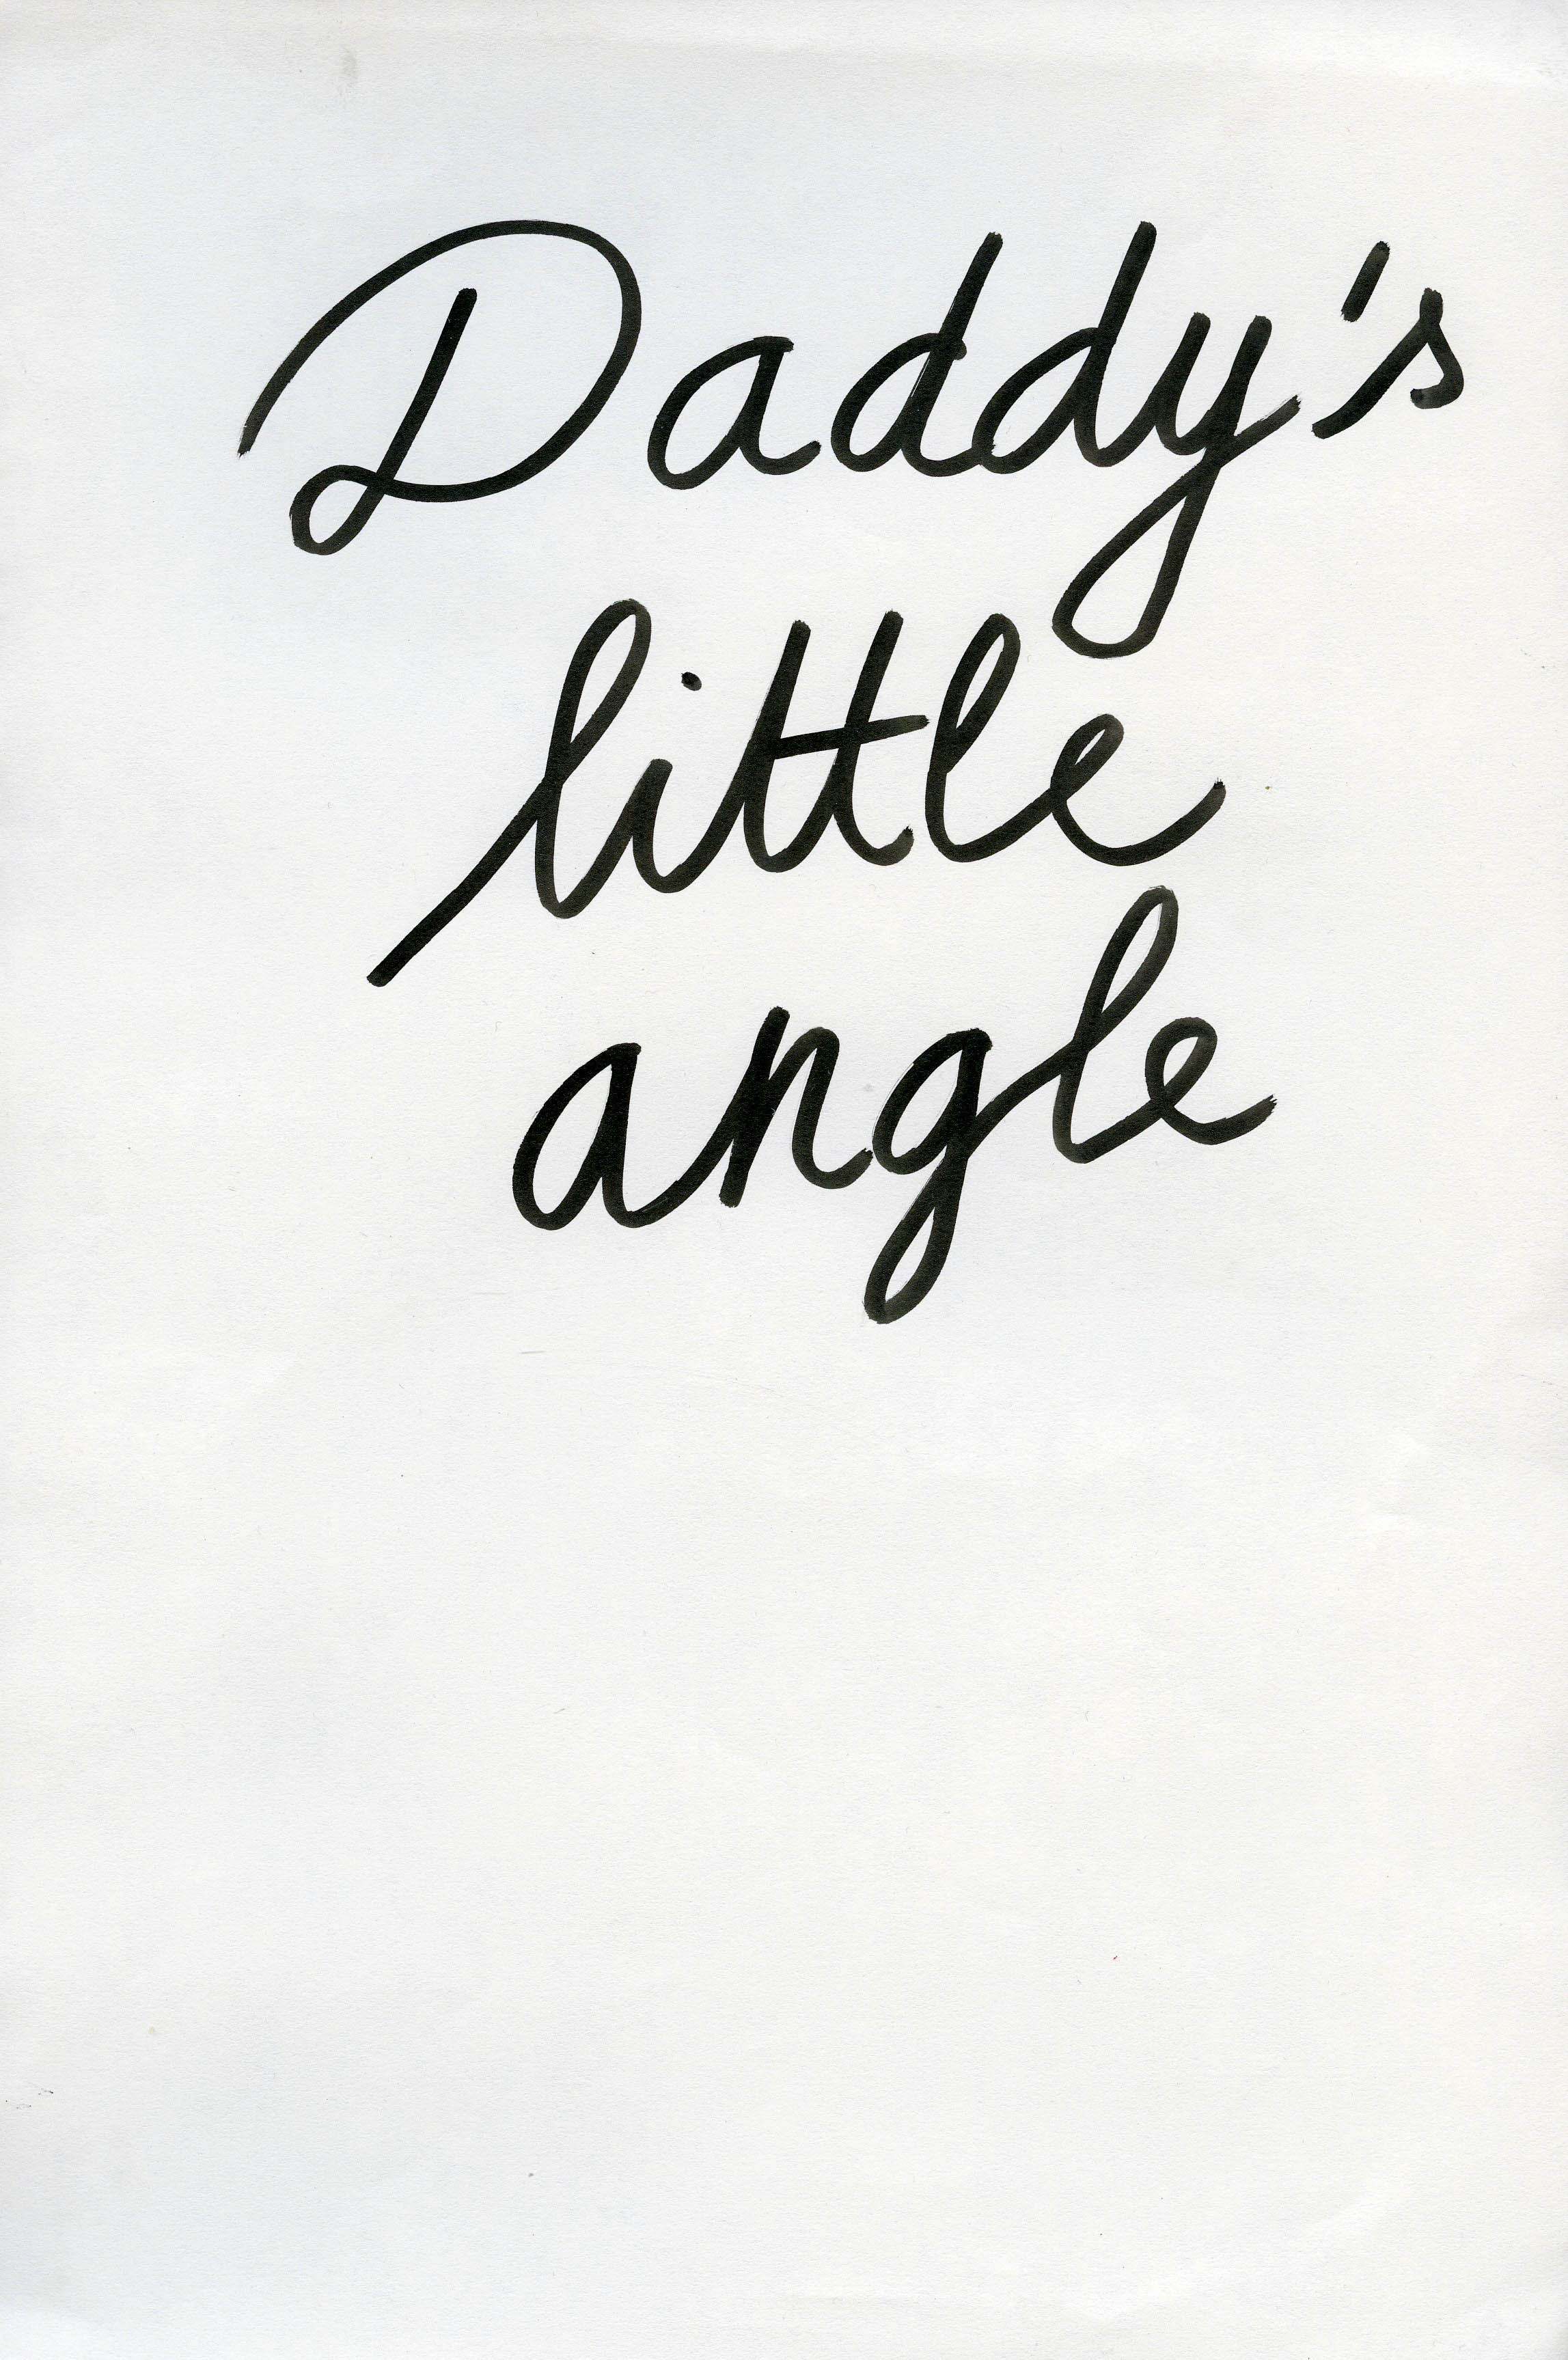 Daddy's
little
angle